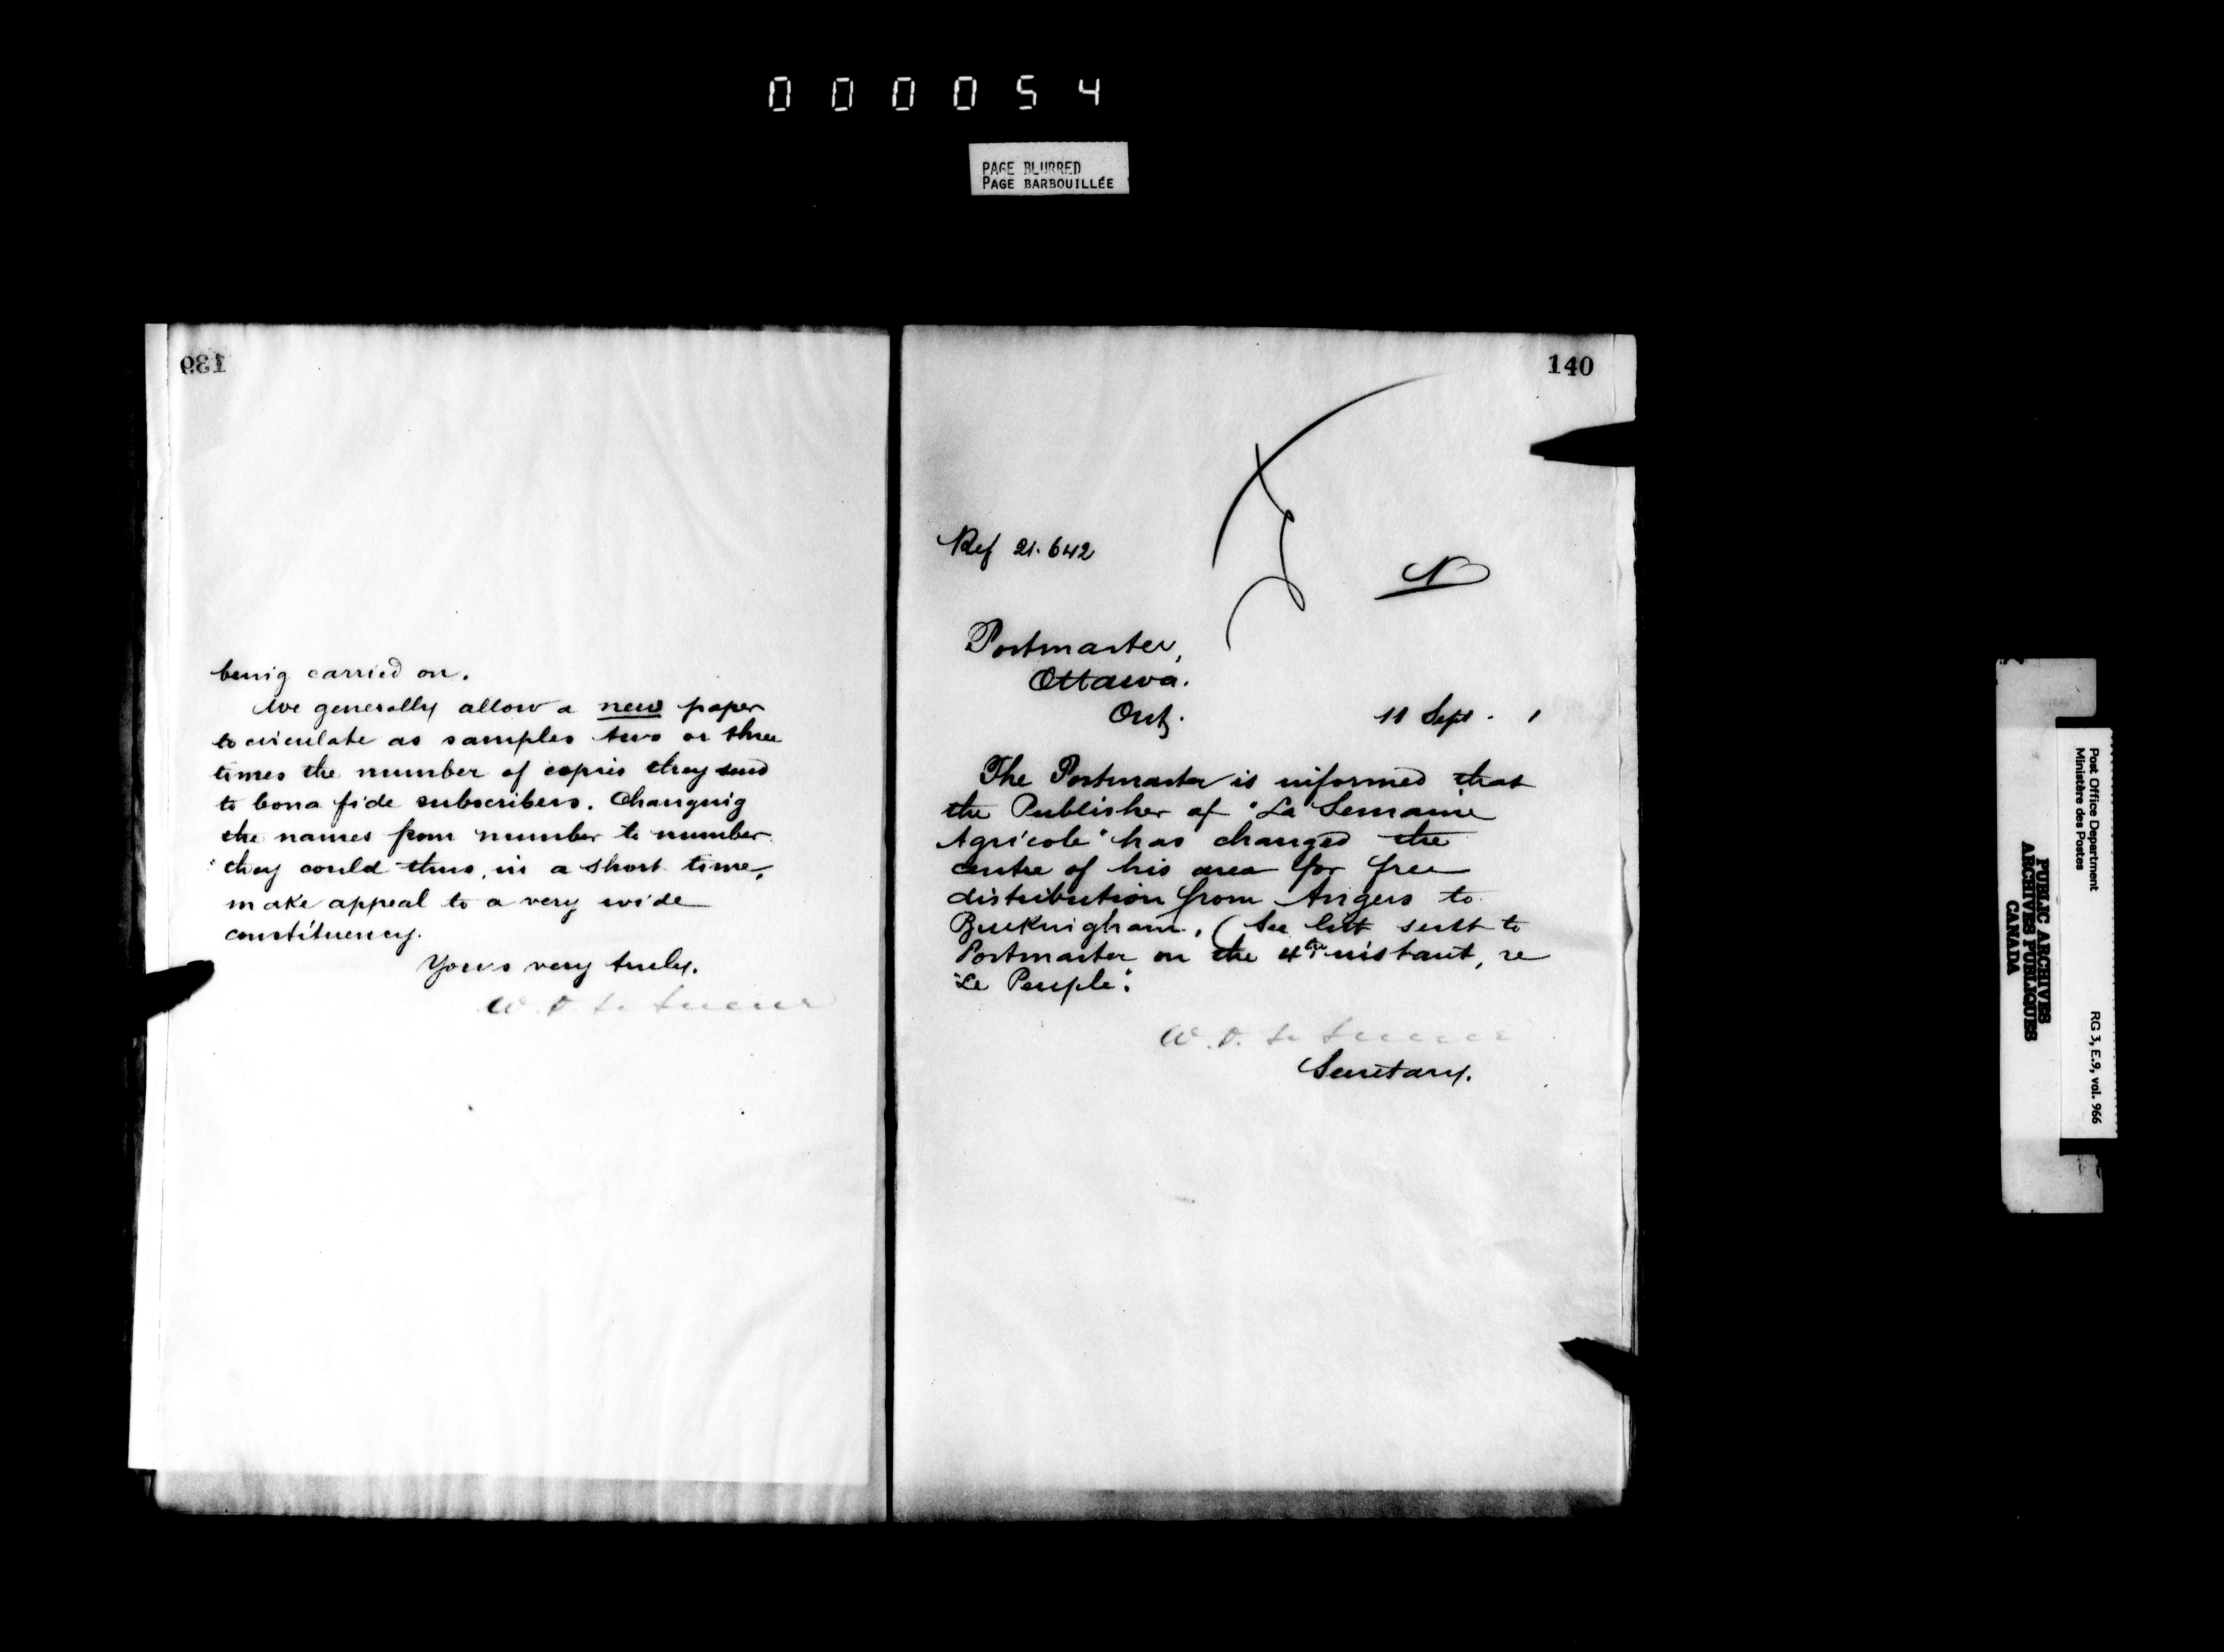 000054
PAGE BLURRED
PAGE BARBOUILLÉE
139
being carried on.
We generally allow a new paper
to circulate as samples two or three
times the number of copies they send
to bona fide subscribers. Changing
the names from number to number
they could thus, in a short time,
make appeal to a very wide
constituency.
Yours very truly.
W. D. Le Sueur
140
Ref 21.642
N
Postmaster,
Ottawa.
Ont.
11 Sept. 1
The Postmaster is informed that
the Publisher of "La Semaine
Agricole" has changed the
centre of his area for free
distribution from Angers to
Buckingham. (See list sent to
Postmaster on the 4th instant, re
"Le Peuple".
W. D. Le Sueur
Secretary.
Post Office Department
Ministère des Postes
RG 3, E.9, vol. 966
PUBLIC ARCHIVES
ARCHIVES PUBLIQUES
CANADA